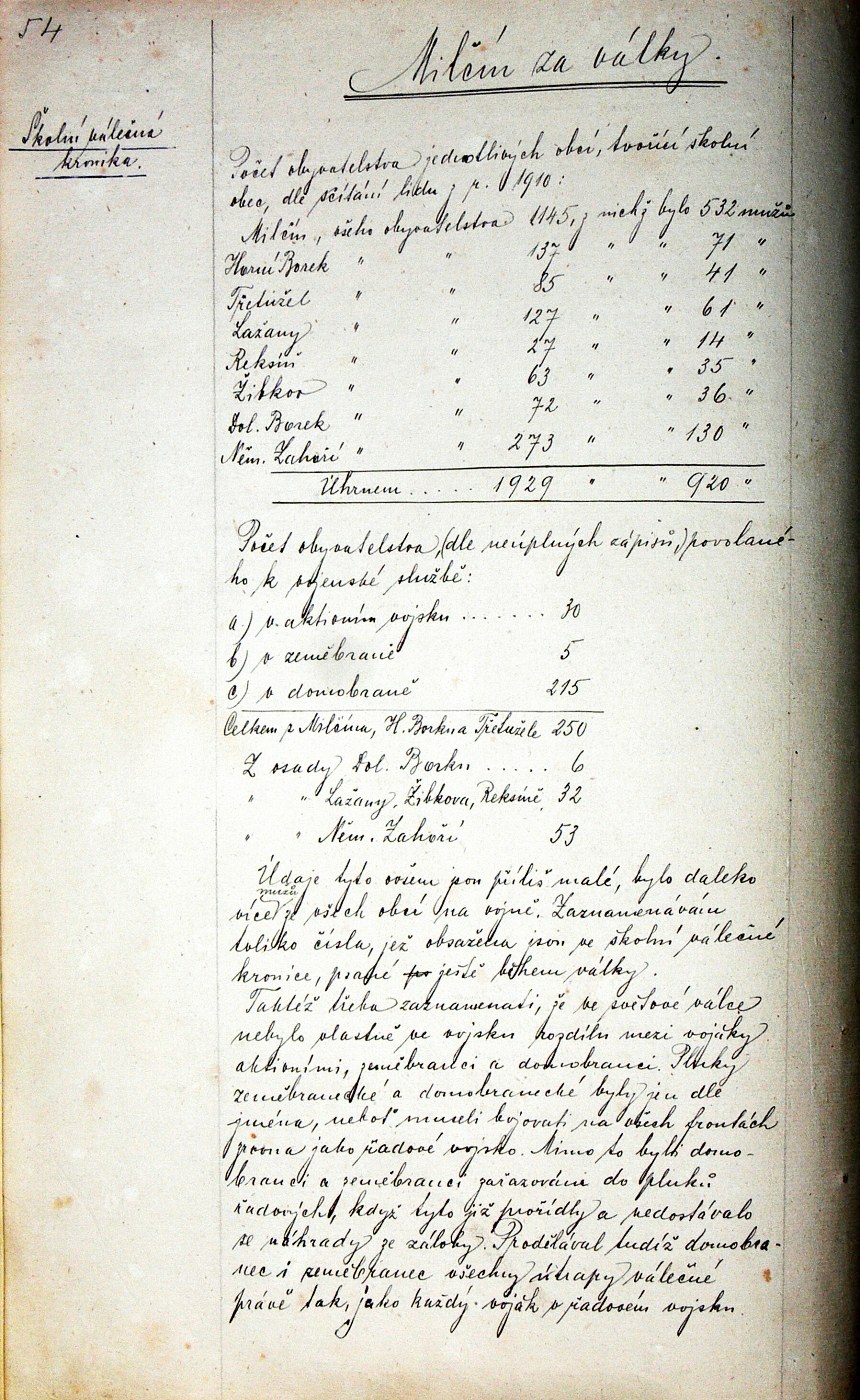 54
Milčín za války.
Školní válečná
kronika.
Počet obyvatelstva jednotlivých obcí, tvořící školní
obec, dle sčítání lidu z r. 1910:
Milčín, všeho obyvatelstva 1145, z nichž bylo 532 mužů
Horní Borek " " 137 " " 71 "
Třetužel " " 85 " " 41 "
Lažany " " 127 " " 61 "
Reksíň " " 27 " " 14 "
Žibkov " " 63 " " 35 "
Dol. Borek " " 72 " " 36 "
Něm. Zahoří " " 273 " " 130 "
Úhrnem ..... 1929 " " 920 "
Počet obyvatelstva, (dle neúplných zápisů,) povolané-
ho k vojenské službě:
a.) v aktivním vojsku ....... 30
b) v zeměbraně 5
c) v domobraně 215
Celkem z Milčína, H. Borku a Třetužele 250
Z osady Dol. Borku ..... 6
" " Lažany, Žibkova, Reksíně 32
" " Něm. Zahoří 53
Údaje tyto ovšem jsou příliš malé, bylo daleko
více mužů ze všech obcí na vojně. Zaznamenávám
toliko čísla, jež obsažena jsou ve školní válečné
kronice, psané po ještě během války.
Taktéž třeba zaznamenati, že ve světové válce
nebylo vlastně ve vojsku rozdílu mezi vojáky
aktivními, zeměbranci a domobranci. Pluky
zeměbranecké a domobranecké byly jen dle
jména, neboť museli bojovati na všech frontách
zrovna jako řadové vojsko. Mimo to byli domo-
branci a zeměbranci zařazováni do pluků
řadových, když tyto již prořídly a nedostávalo
se náhrady ze zálohy. Prodělával tudíž domobra-
nec i zeměbranec všechny útrapy válečné
právě tak, jako každý voják v řadovém vojsku.